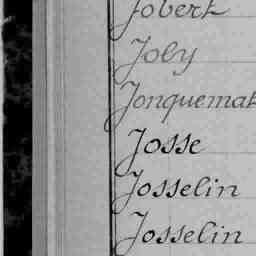 Jobert
Joly
Jonquemat
Josse
Josselin
Josselin